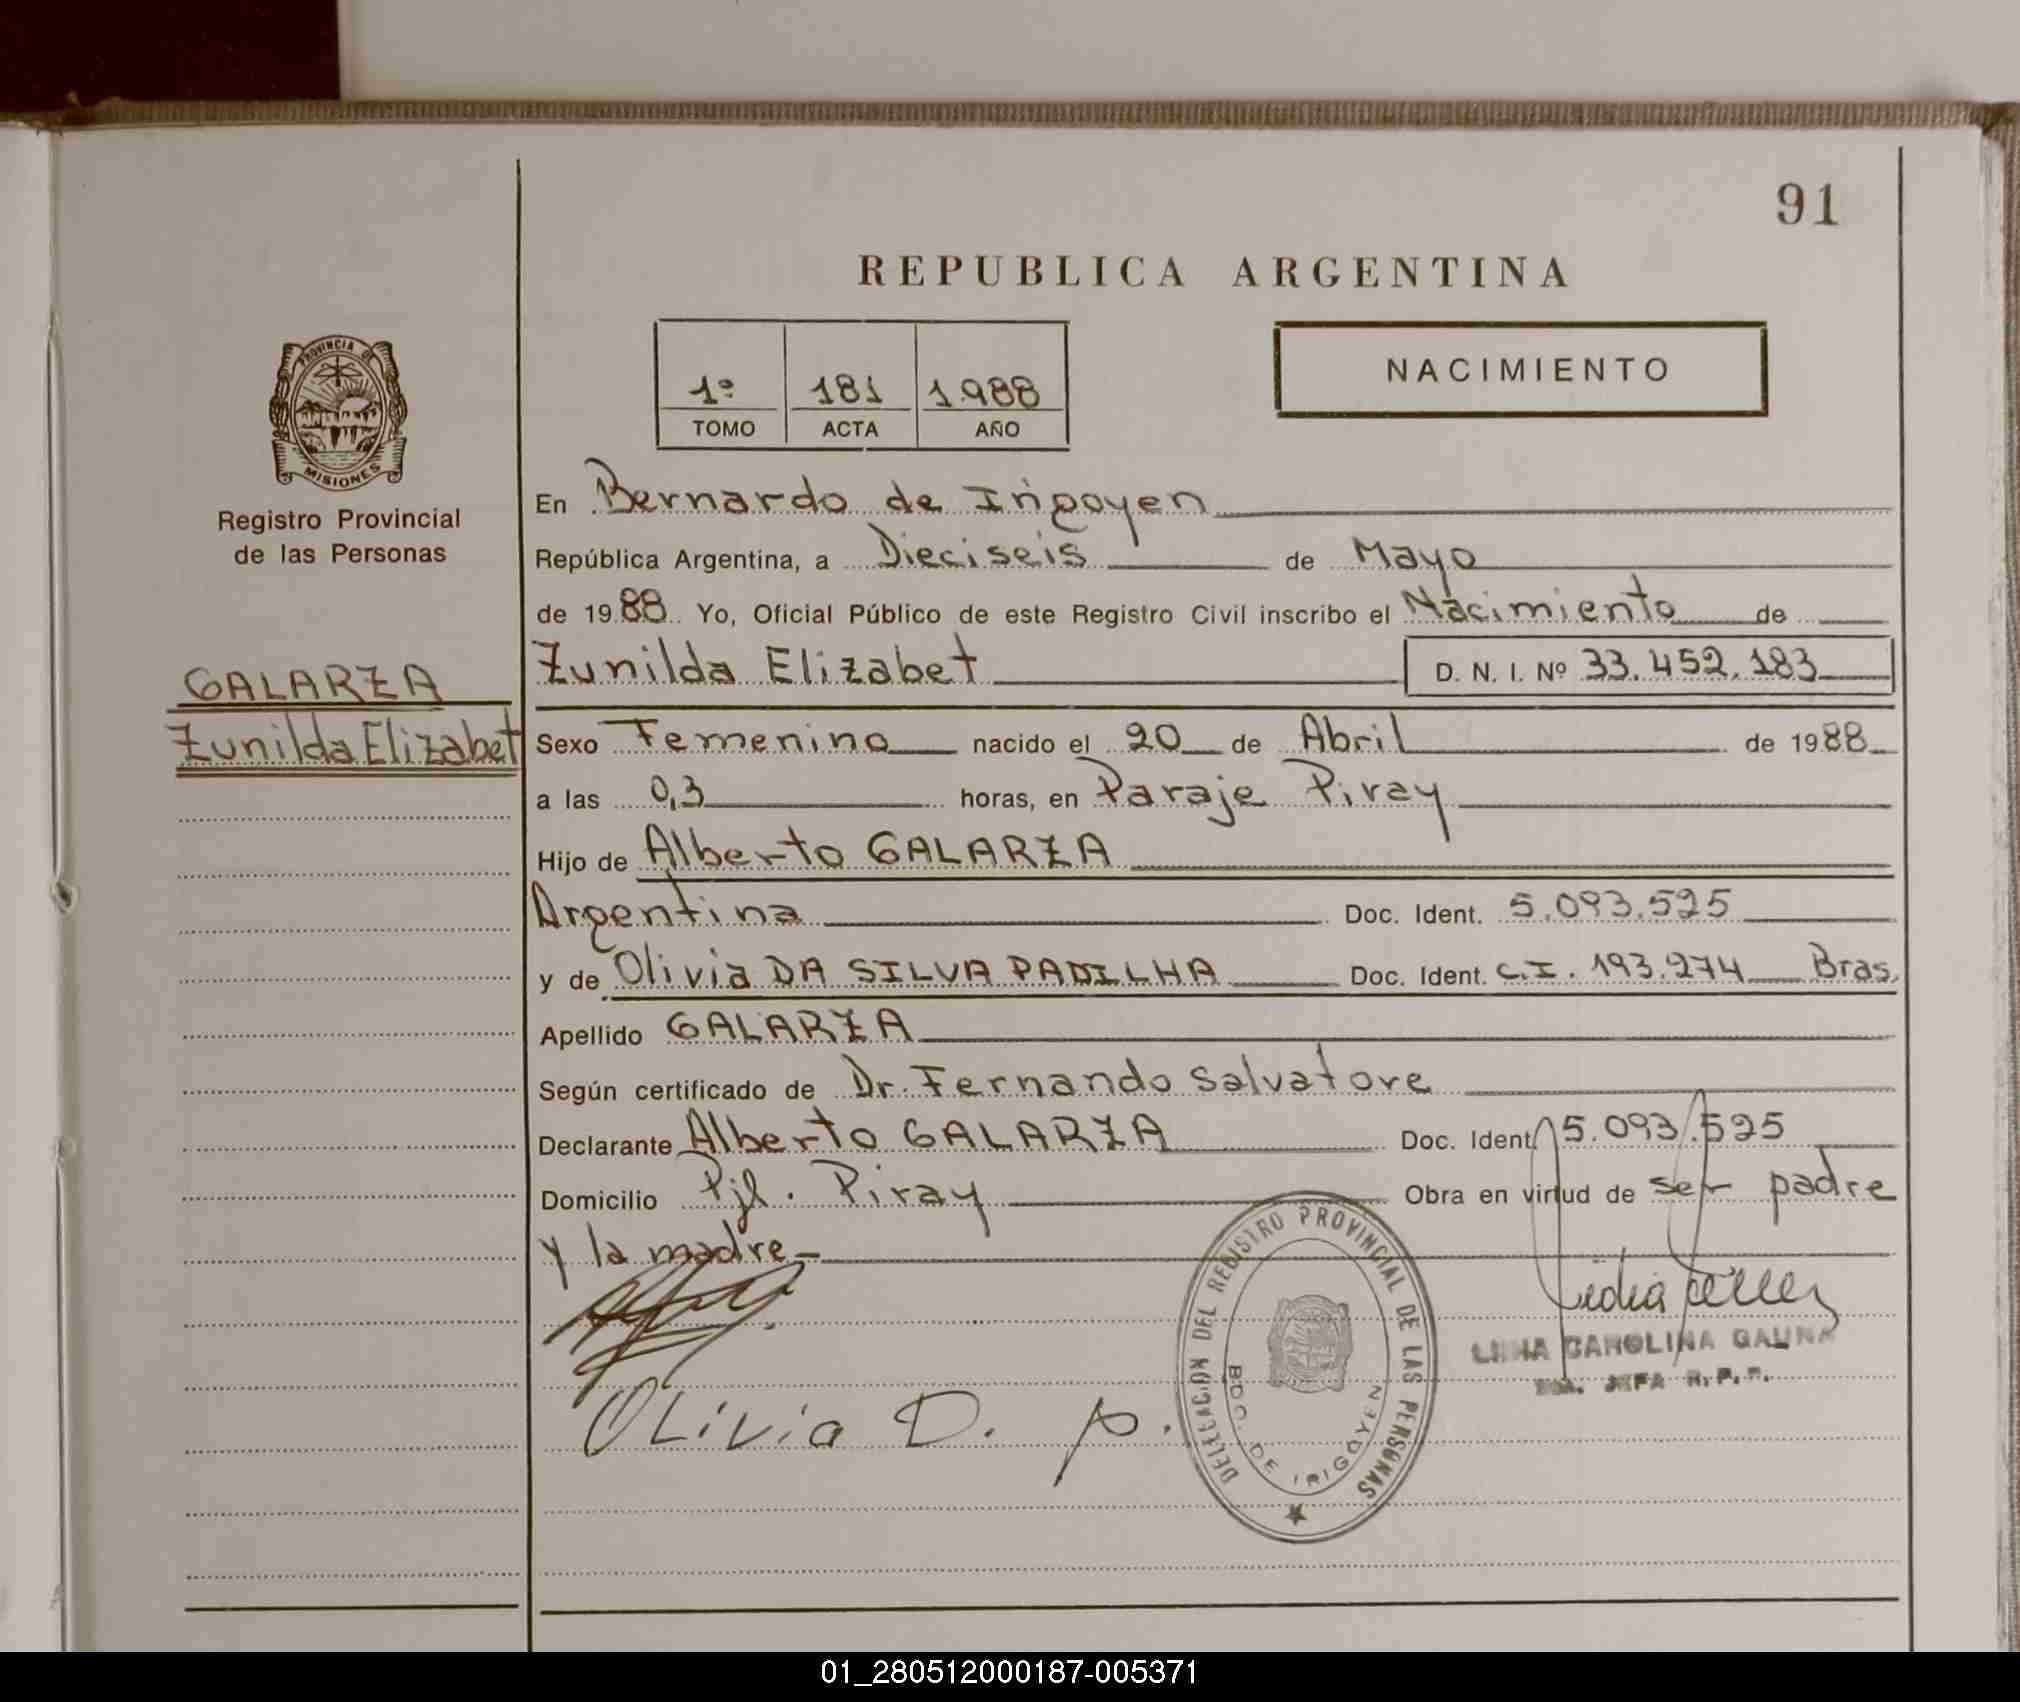 91
REPUBLICA ARGENTINA
1º 181 1.988
TOMO ACTA AÑO
NACIMIENTO
PROVINCIA DE
MISIONES
Registro Provincial
de las Personas
GALARZA
Zunilda Elizabet
En Bernardo de Irigoyen
República Argentina, a Dieciseis de Mayo
de 1988 Yo, Oficial Público de este Registro Civil inscribo el Nacimiento de
Zunilda Elizabet D. N. I. Nº 33.452.183
Sexo Femenino nacido el 20 de Abril de 1988
a las 0,3 horas, en Paraje Piray
Hijo de Alberto GALARZA
Argentina Doc. Ident. 5.093.525
y de Olivia DA SILVA PADILHA Doc. Ident. C.I. 193.274 Bras.
Apellido GALARZA
Según certificado de Dr. Fernando Salvatore
Declarante Alberto GALARZA Doc. Ident. 5.093.525
Domicilio Pje. Piray Obra en virtud de ser padre
y la madre
Olivia D. p.
DELEGACION DEL REGISTRO PROVINCIAL DE LAS PERSONAS
BDO. DE IRIGOYEN
CAROLINA
JEFA R.P.P.
01_280512000187-005371